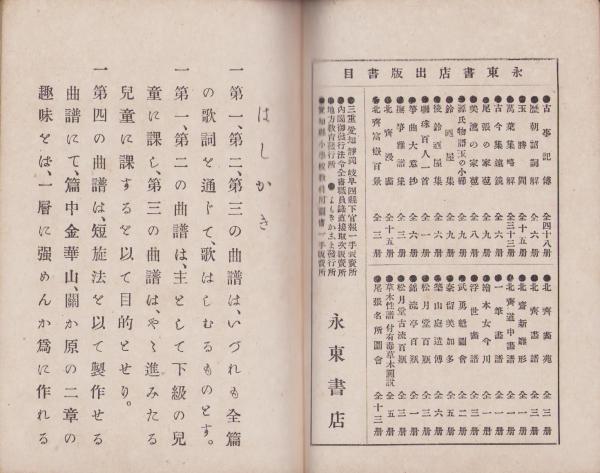 永東書店出版書目
●古事記傳 全四十八册
●歷朝詔詞解 全六册
●玉勝間 全十五册
●萬葉集略解 全三十三册
●古今集遠鏡 全六册
●尾張の家苞 全九册
●美濃の家苞 全八册
●源氏物語玉の小櫛 全九册
●後鈴屋集
●鈴屋集 全九册
●聯珠百人一首 全一册
●箏曲大意抄
●撫箏雅譜
●北齋漫畫 全十五册
●北齋富嶽百景 全三册
●北齋畫苑 全三册
●北齋畫譜 全三册
●北齋新雛形 全一册
●北齋道中畫譜 全一册
●一筆畫譜 全一册
●繪本女今川 全一册
●浮世畫譜 全三册
●武勇魁圖會 全二册
●奈留美加多 全五册
●築山庭造傳 全六册
●松月堂百瓶 全一册
●錦流亭百瓶
●松月堂古流百瓶 全三册
●草木性譜 付有毒草木圖說 全五册
●尾張名所圖會 全十三册
●三重愛知靜岡岐阜四縣下官報一手販賣所
●內閣御發行法令全書職員錄直接取次販賣所
●地方敎育發行所
●愛知縣小學校敎科用圖書一手販賣所
永東書店
はしがき
一第一、第二、第三の曲譜は、いづれも全篇
の歌詞を通じて、歌はしむるものとす。
一第一、第二の曲譜は、主として下級の兒
童に課し、第三の曲譜は、やゝ進みたる
兒童に課するを以て目的とせり。
一第四の曲譜は、短旋法を以て製作せる
曲譜にて、篇中金華山、關か原の二章の
趣味とは、一層に强めんか爲に作れる